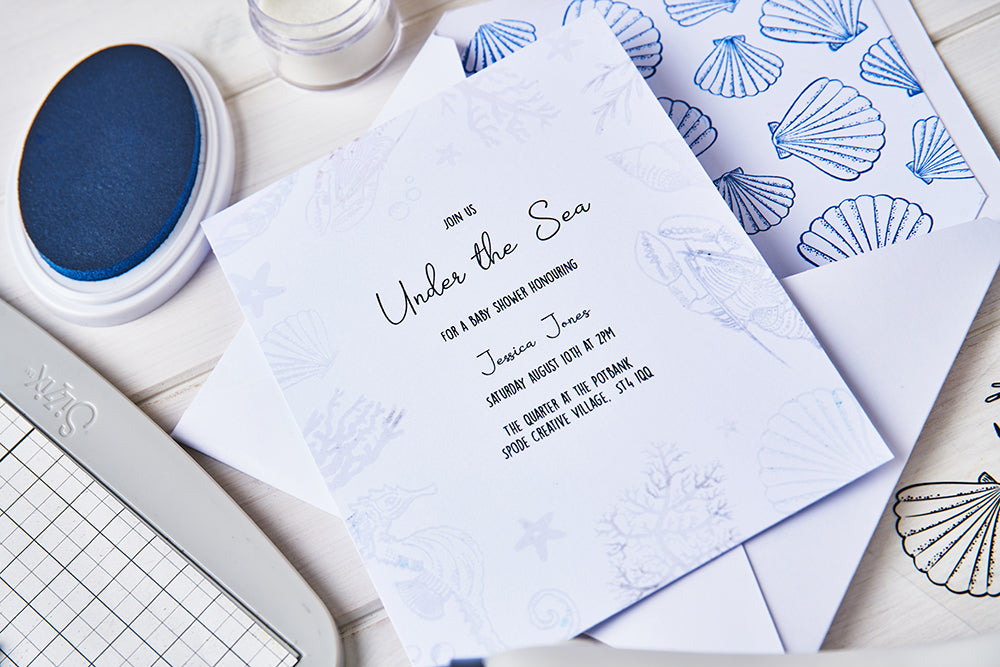 JOIN US
Under the Sea
FOR A BABY SHOWER HONOURING
Jessica Jones
SATURDAY AUGUST 10TH AT 2PM
THE QUARTER AT THE POTBANK
SPODE CREATIVE VILLAGE, ST4 1QQ
Sizzix